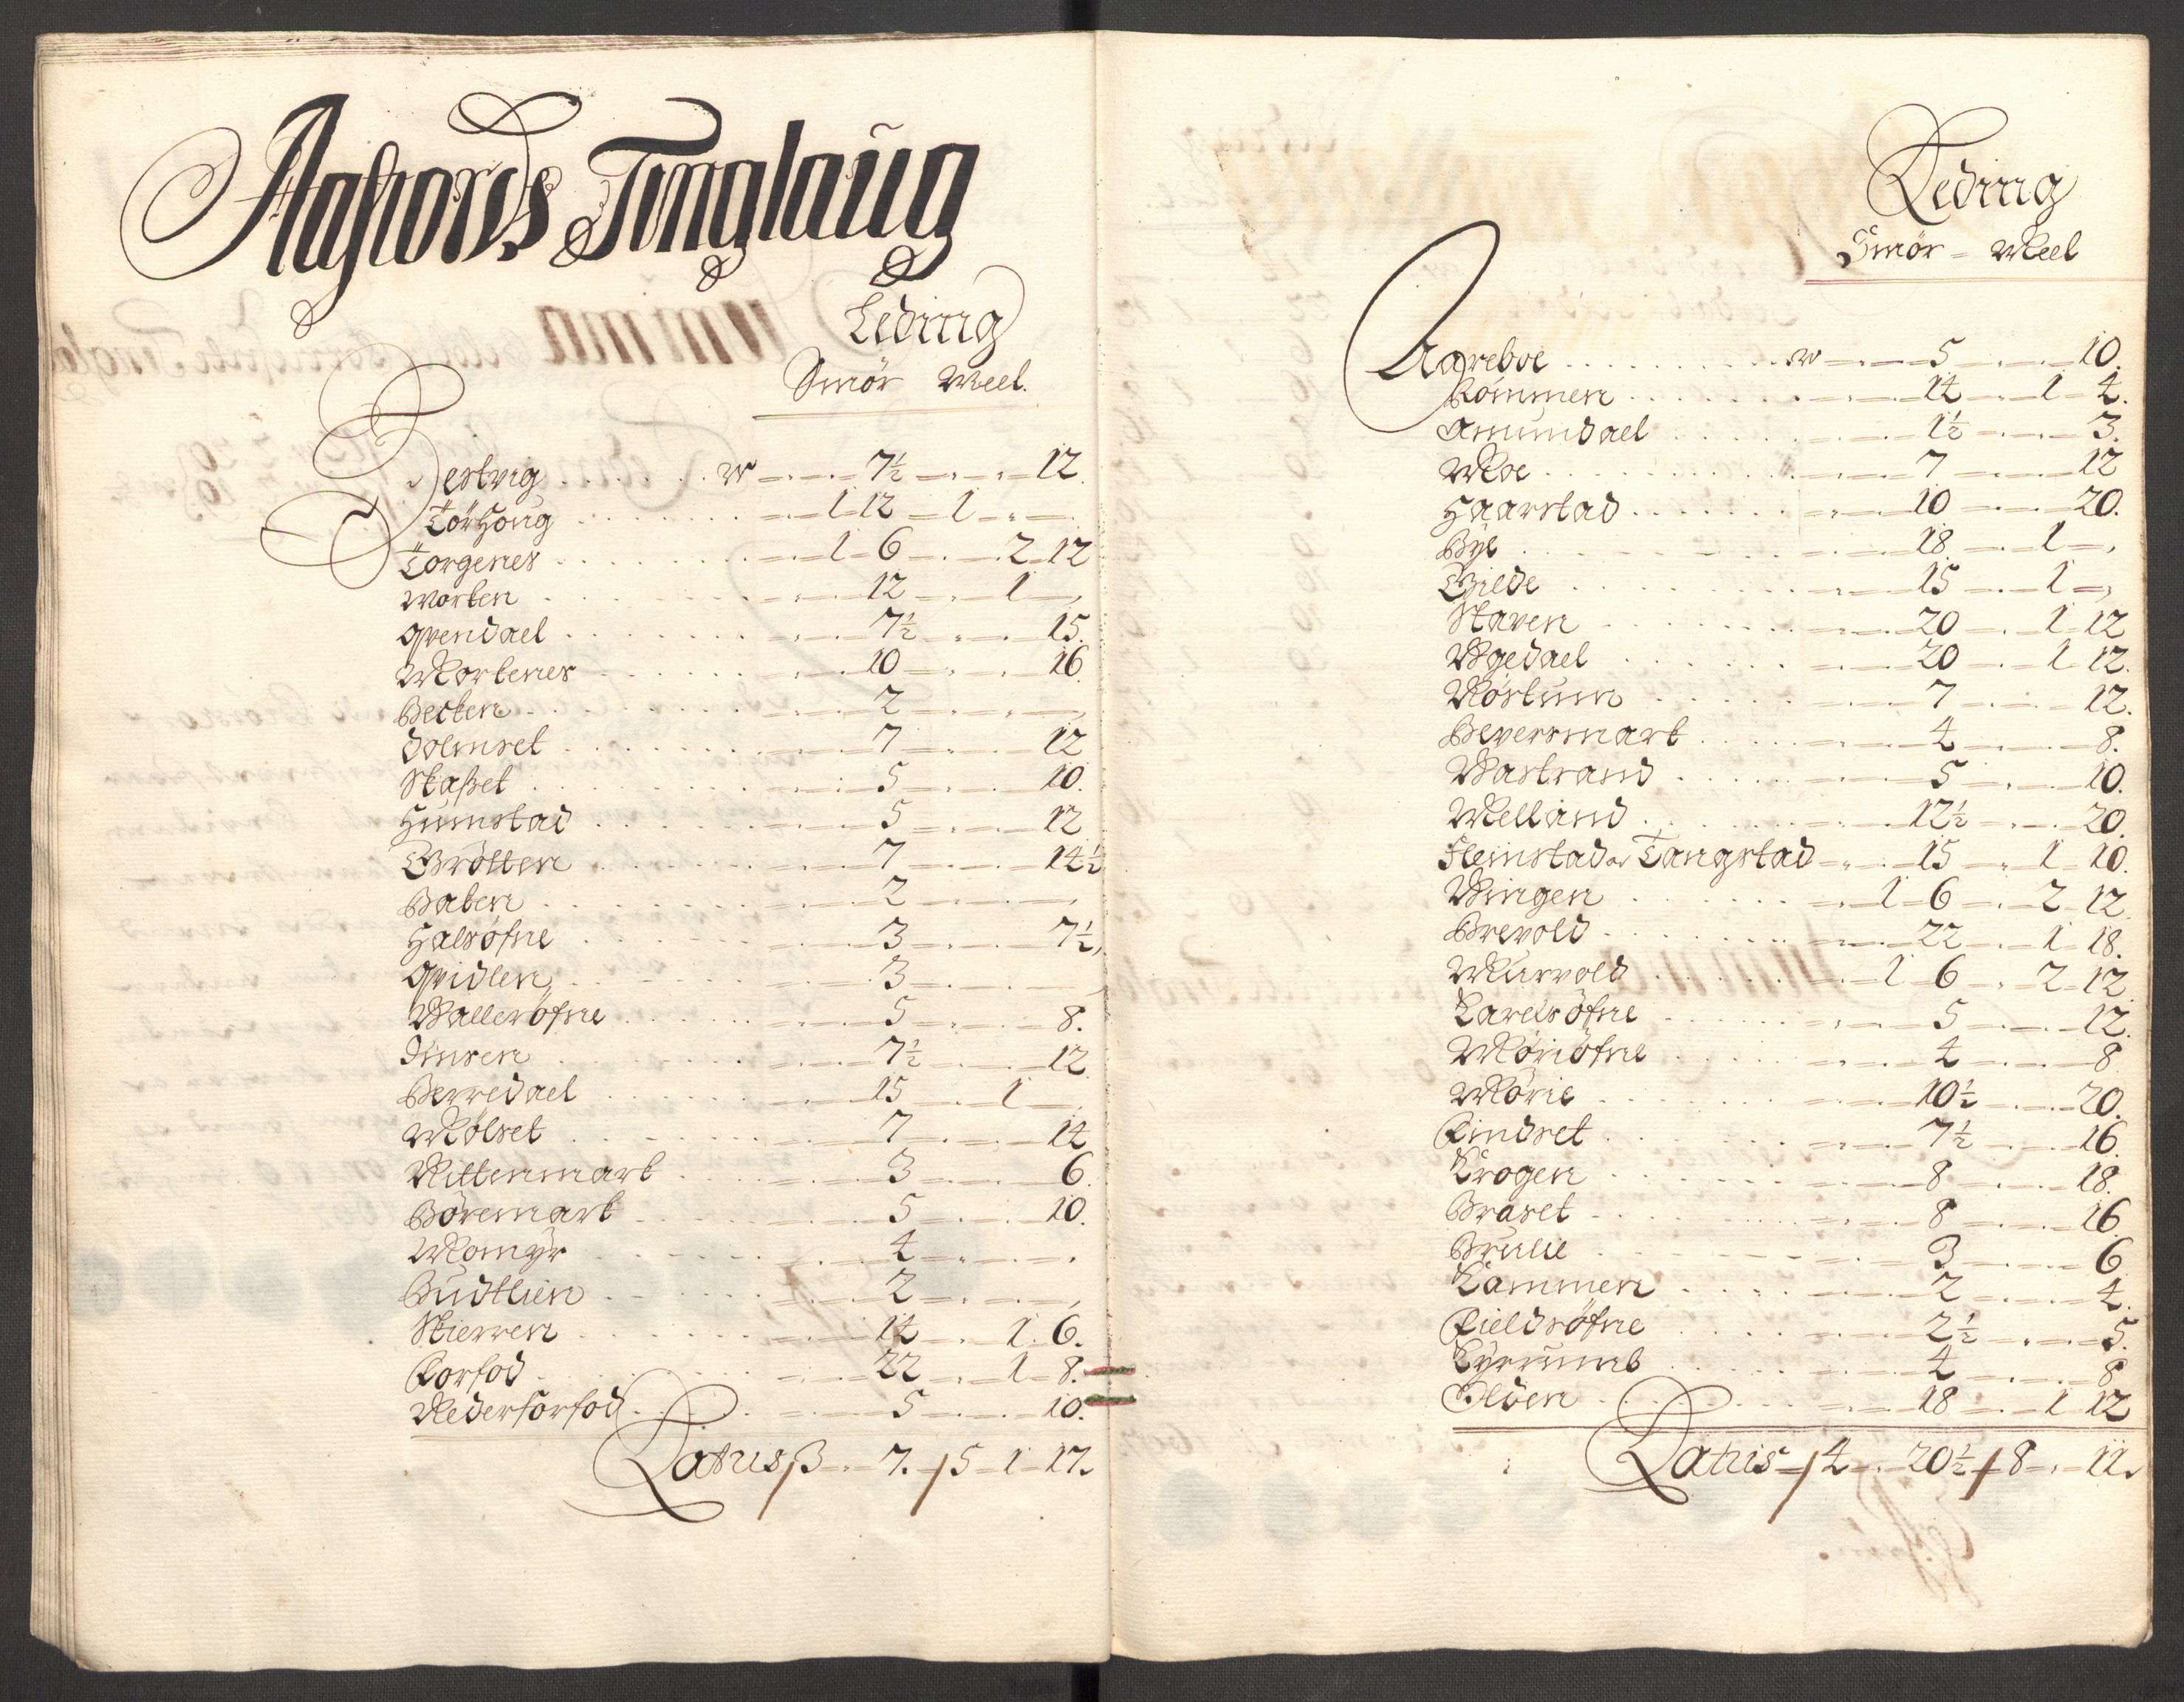 Aafiords Tinglaug
Leding
Smör Meel.
Hestvig . . . . . . W 7½ 12.
Törhoug 1 12 1
Torgenes 1 6 2 12
Worten 12 1
Qvendael 7½ 15.
Mortenes 10 16
Becken 2
Dolmset 7 12
Staßet 5 10.
Humstad 5 12
Grötten 7 14½
Baken 2
Halsöfne 3 7½
Qvidlen 3
Wallersöfne 5 8.
Jinsen 7½ 12
Berredael 15 1
Mölset 7 14
Nittenmark 3 6
Böremark 5 10.
Momyr 4
Gudtlien 2
Skierren 14 1 6.
Forfod 22 1 8.
Nederforfod 5 10.
Latus 3 7. 5 1 17.
Leding
Smör Meel
Aareboe . . . . . W 5 10.
Kommen 14 1 4.
Amundael 1½ 3.
Moe 7 12
Haarstad 10 20.
Bye 18 1
Gielde 15 1
Staven 20 1 12
Mgedael 20 1 12.
Nörtum 7 12.
Beversmark 4 8.
Wastrand 5 10.
Melland 12½ 20.
Heimstad og Tangstad 15 1 10.
Wingen 1 6 2 12
Brevold 22 1 18.
Murvold 1 6 2 12
Karelsöfne 5 12.
Möriöfne 4 8
Mörie 10½ 20.
Rindset 7½ 16.
Krogen 8 18.
Braset 8 16
Brulie 3 6
Kammen 2 4.
Fieldsöfne 2½ 5.
Kyrrumb 4 8
Olden 18 1 12
Latus 4 20½ 8 11.